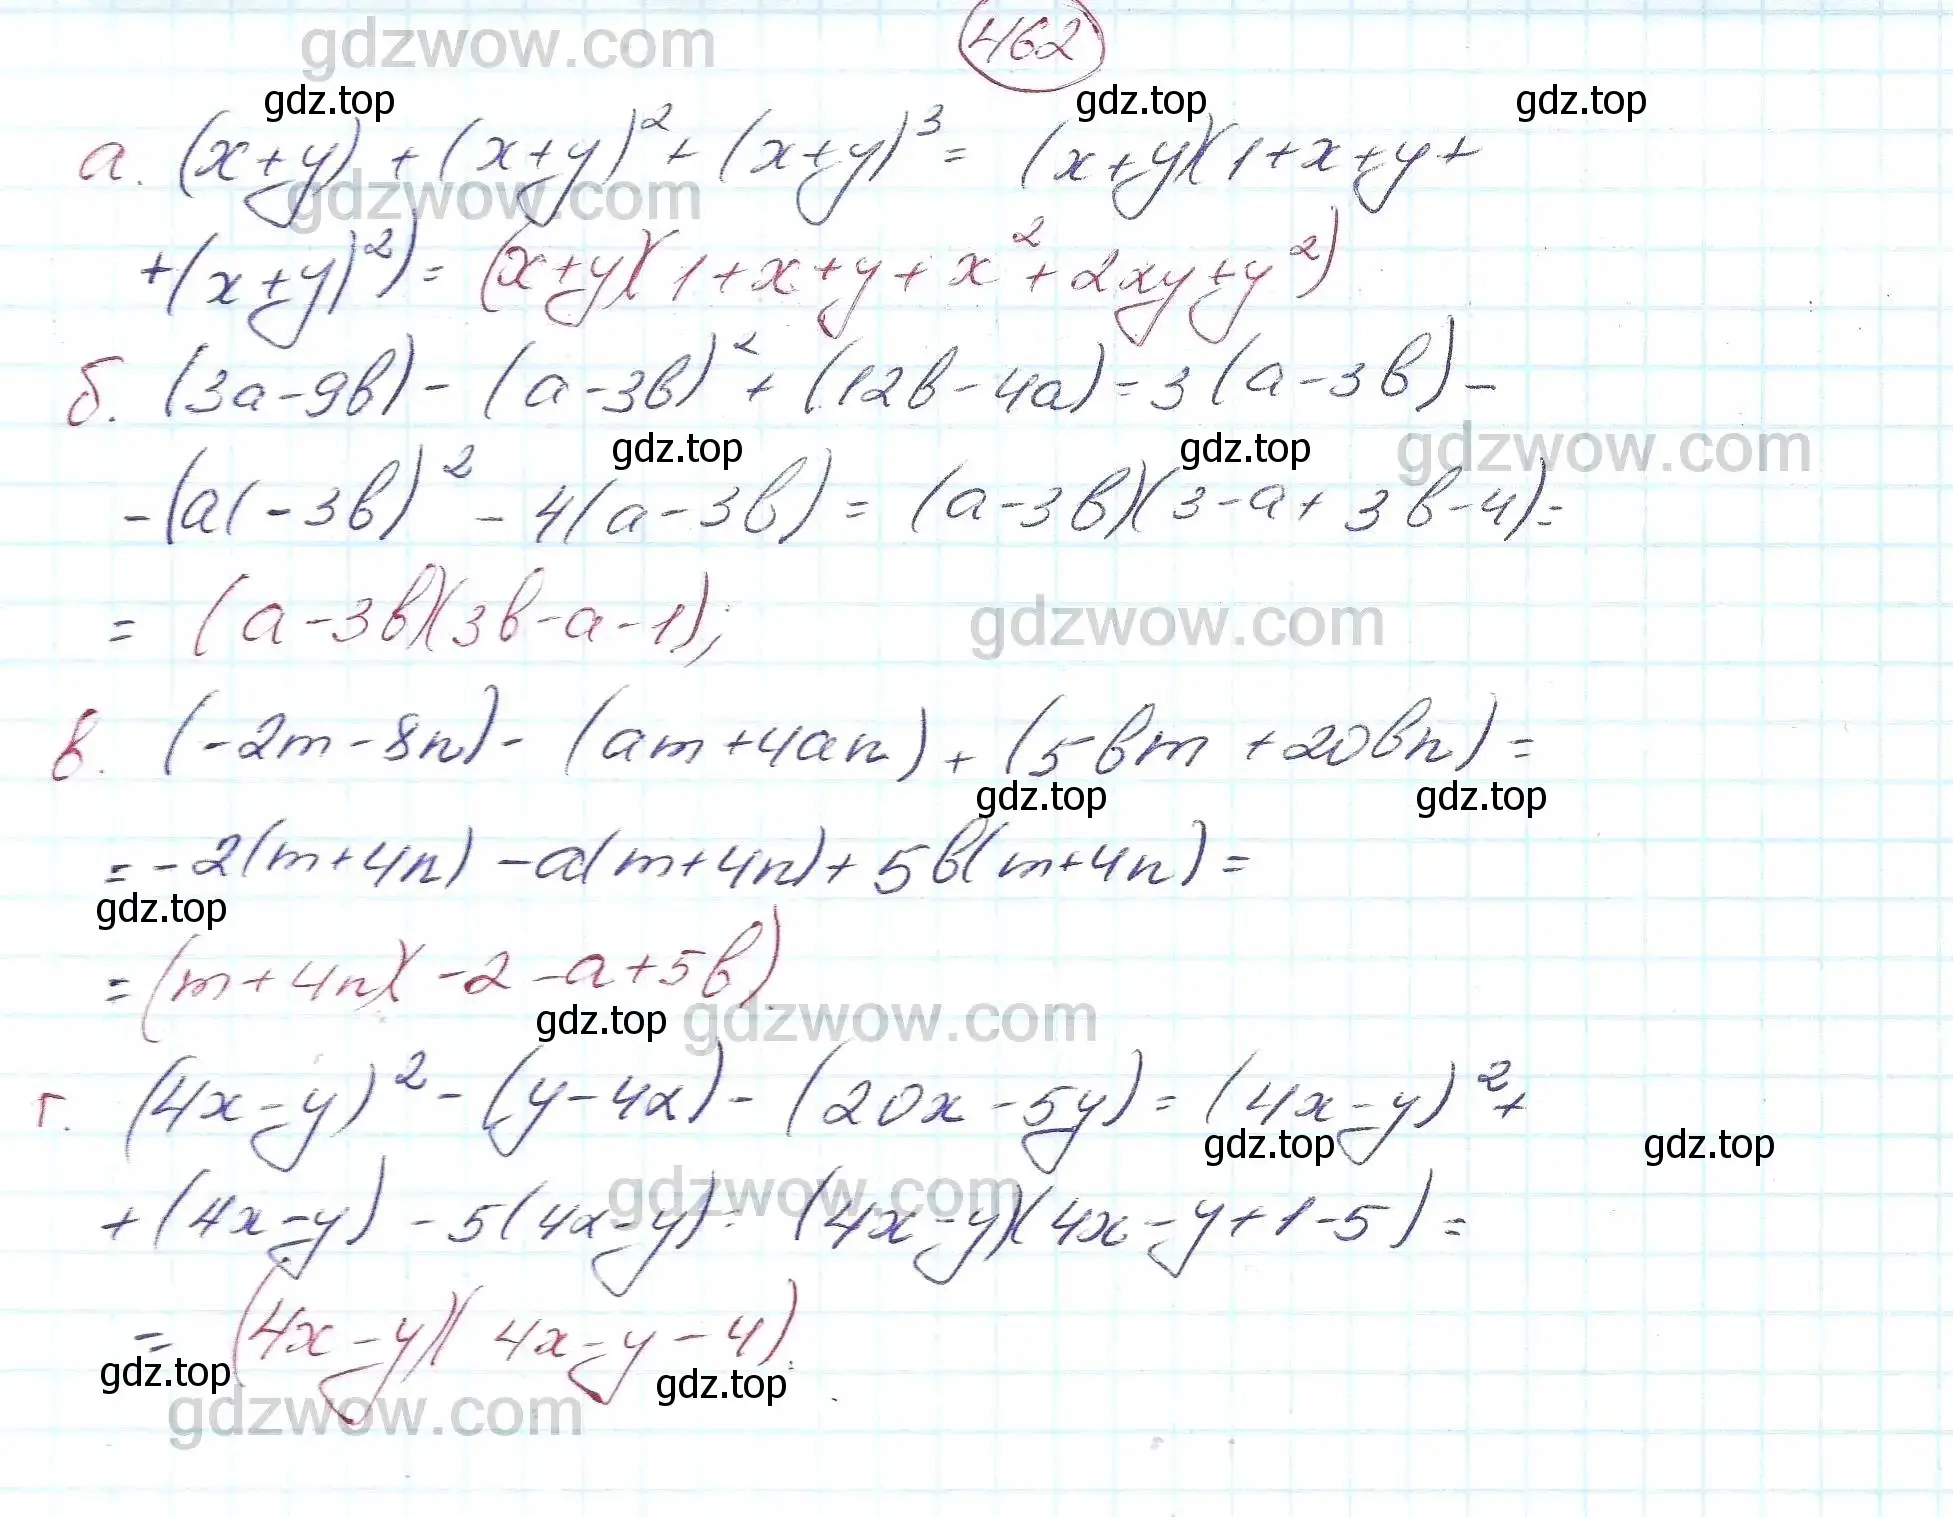 gdzwow.com
462
gdz.top gdz.top gdz.top
а. (x+y) + (x+y)² + (x+y)³ = (x+y)(1+x+y+
gdzwow.com
+(x+y)²) = (x+y)(1+x+y+x²+2xy+y²)
б. (3a-9b) - (a-3b)² + (12b-4a) = 3(a-3b) -
gdz.top gdz.top gdzwow.com
-(a(-3b)² - 4(a-3b) = (a-3b)(3-a+3b-4) =
= (a-3b)(3b-a-1); gdzwow.com
в. (-2m-8n) - (am+4an) + (5bm+20bn) =
gdz.top gdz.top
= -2(m+4n) - a(m+4n) + 5b(m+4n) =
gdz.top
= (m+4n)(-2-a+5b)
gdz.top gdzwow.com
г. (4x-y)² - (y-4x) - (20x-5y) = (4x-y)² +
gdz.top gdz.top
gdzwow.com
+ (4x-y) - 5(4x-y) = (4x-y)(4x-y+1-5) =
= (4x-y)(4x-y-4).
gdz.top gdz.top
gdzwow.com